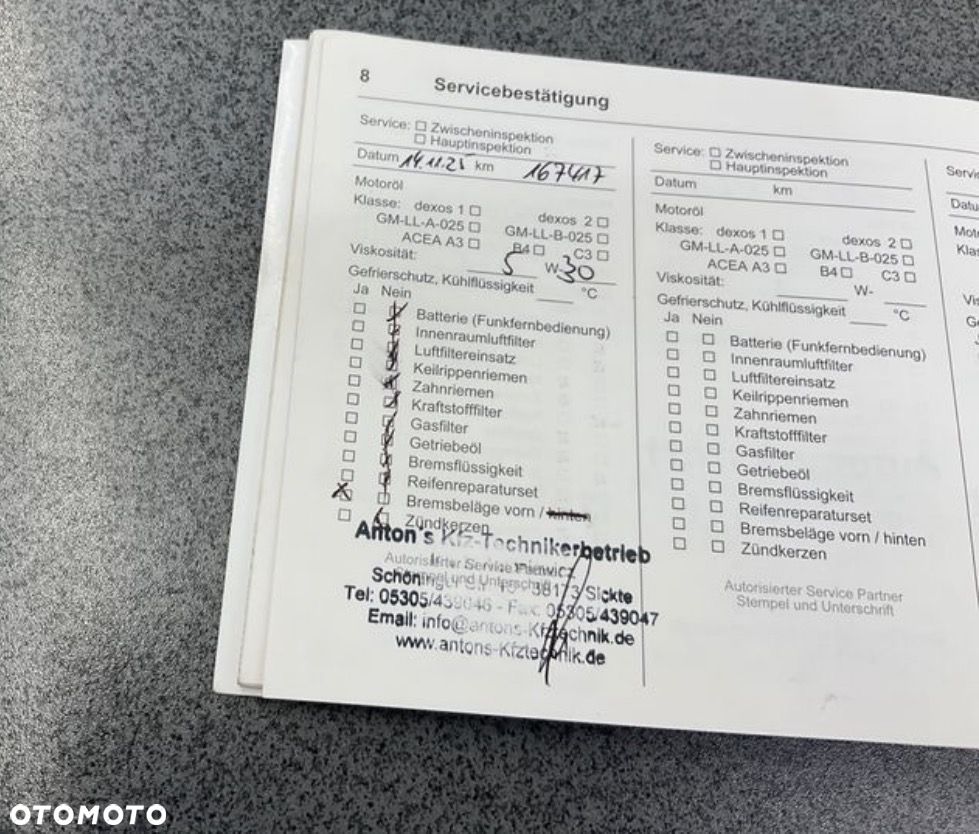 8 Servicebestätigung
Service: Zwischeninspektion
Hauptinspektion
Datum 14.11.25 km 167417
Motoröl
Klasse: dexos 1 dexos 2
GM-LL-A-025 GM-LL-B-025
ACEA A3 B4 C3
Viskosität: 5 W-30
Gefrierschutz, Kühlflüssigkeit °C
Ja Nein
Batterie (Funkfernbedienung)
Innenraumluftfilter
Luftfiltereinsatz
Keilrippenriemen
Zahnriemen
Kraftstofffilter
Gasfilter
Getriebeöl
Bremsflüssigkeit
Reifenreparaturset
Bremsbeläge vorn / hinten
Zündkerzen
Anton's Kfz-Technikerbetrieb
Autorisierter Service
Stempel und Unterschrift
38173 Sickte
Tel: 05305/439046 - Fax: 05305/439047
Email: info@antons-Kfztechnik.de
www.antons-Kfztechnik.de
Service: Zwischeninspektion
Hauptinspektion
Datum km
Motoröl
Klasse: dexos 1 dexos 2
GM-LL-A-025 GM-LL-B-025
ACEA A3 B4 C3
Viskosität: W-
Gefrierschutz, Kühlflüssigkeit °C
Ja Nein
Batterie (Funkfernbedienung)
Innenraumluftfilter
Luftfiltereinsatz
Keilrippenriemen
Zahnriemen
Kraftstofffilter
Gasfilter
Getriebeöl
Bremsflüssigkeit
Reifenreparaturset
Bremsbeläge vorn / hinten
Zündkerzen
Autorisierter Service Partner
Stempel und Unterschrift
OTOMOTO